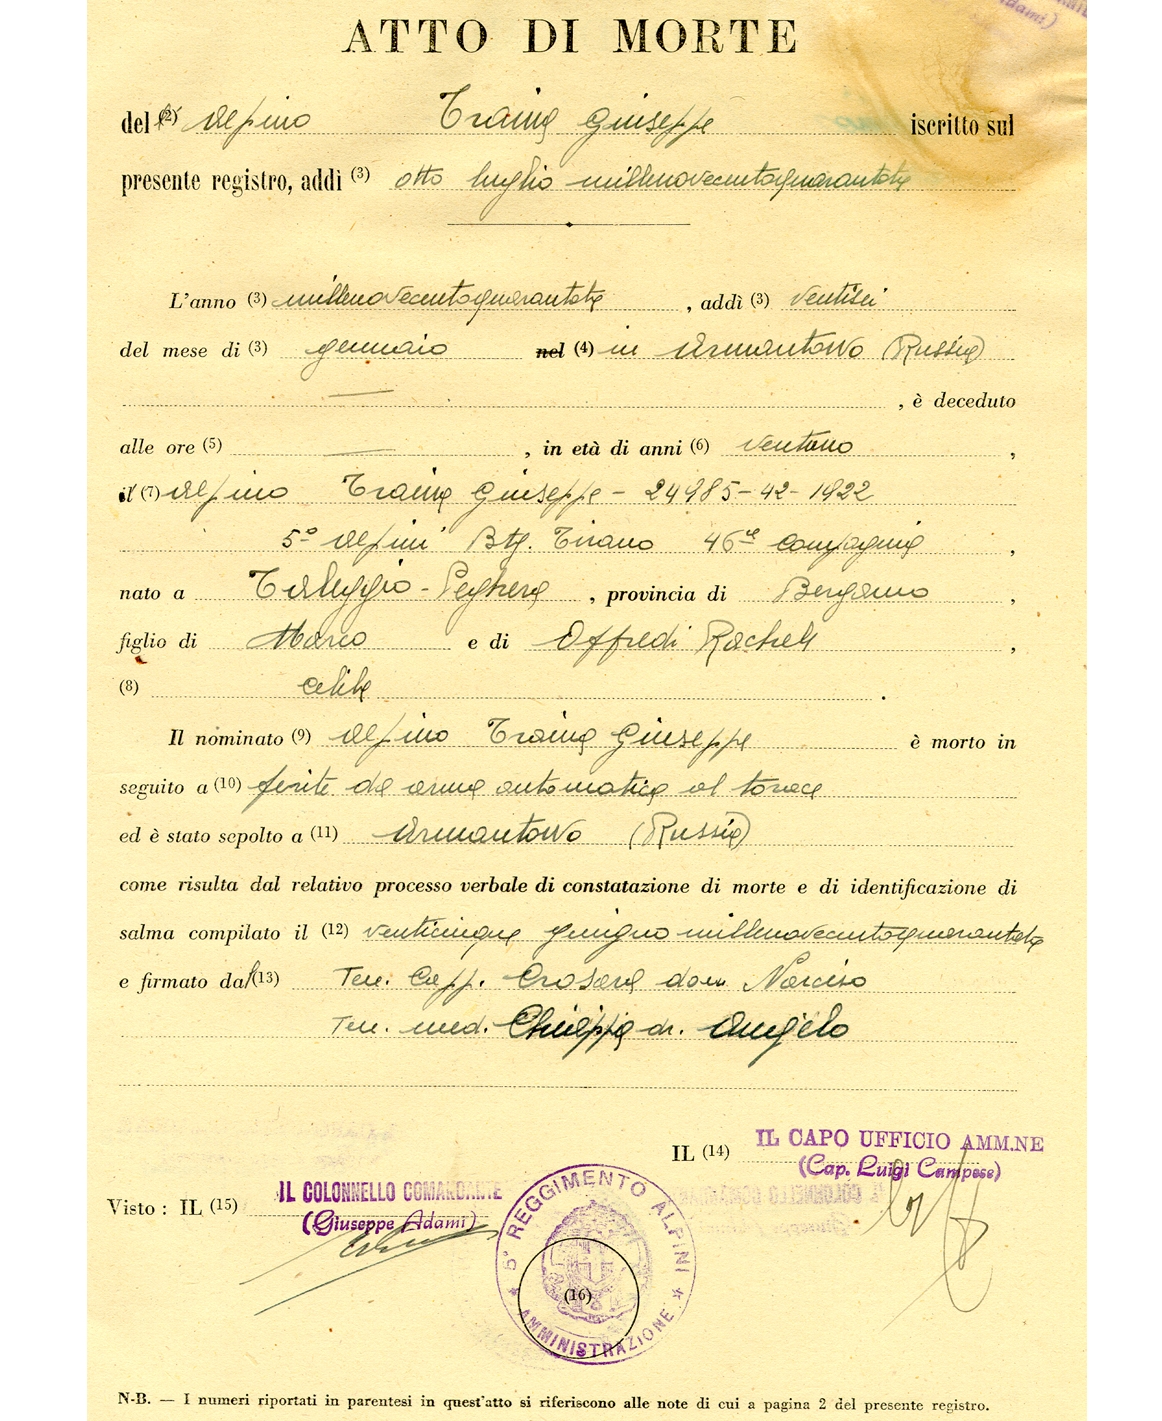 Adami)
ATTO DI MORTE
del (2) Alpino Traina Giuseppe iscritto sul
presente registro, addì (3) otto luglio millenovecentoquarantatre
L'anno (3) millenovecentoquarantatre , addì (3) ventisei
del mese di (3) gennaio nel (4) in Arnautowo (Russia)
— , è deceduto
alle ore (5) — , in età di anni (6) ventuno ,
il (7) Alpino Traina Giuseppe - 24985-42-1922
5° Alpini Btg. Tirano 46ª compagnia ,
nato a Taleggio - Peghera , provincia di Bergamo ,
figlio di Marco e di Offredi Rachele ,
(8) celibe .
Il nominato (9) Alpino Traina Giuseppe è morto in
seguito a (10) ferite da arma automatica al torace
ed è stato sepolto a (11) Arnautowo (Russia)
come risulta dal relativo processo verbale di constatazione di morte e di identificazione di
salma compilato il (12) venticinque giugno millenovecentoquarantatre
e firmato dal (13) Ten. Capp. Crosara don Narciso
Ten. med. Chiappa dr. Angelo
IL (14) IL CAPO UFFICIO AMM.NE
(Cap. Luigi Campese)
Visto : IL (15) IL COLONNELLO COMANDANTE
(Giuseppe Adami)
5° REGGIMENTO ALPINI * AMMINISTRAZIONE *
(16)
N-B. — I numeri riportati in parentesi in quest'atto si riferiscono alle note di cui a pagina 2 del presente registro.